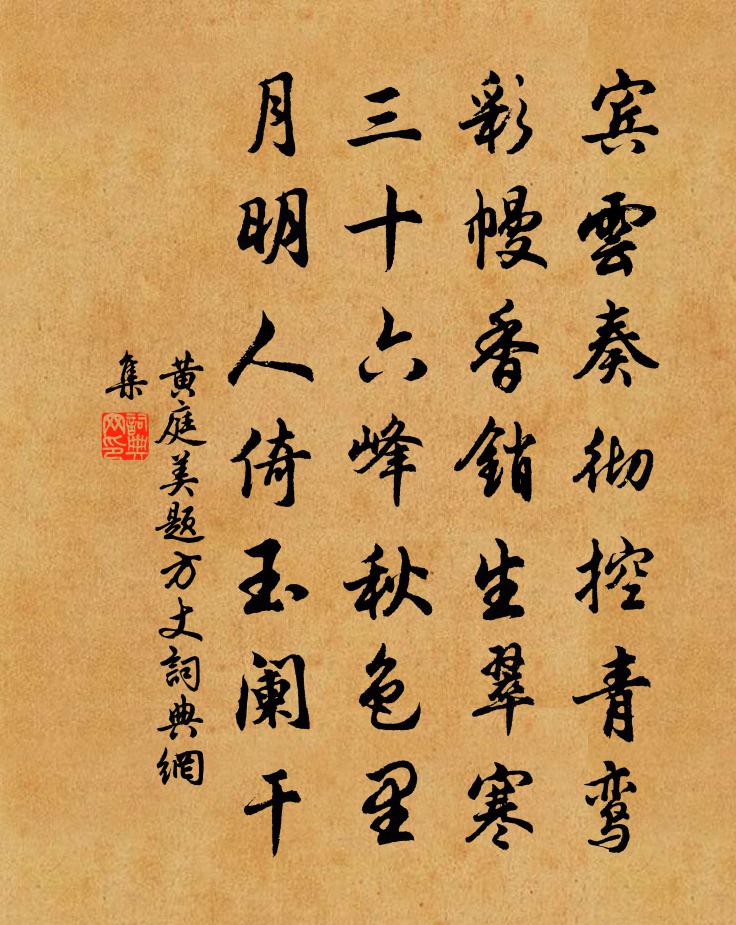 宾雲奏彻控青鸾
彩幔香銷生翠寒
三十六峰秋色里
月明人倚玉阑干
黄庭美题方丈詞典網
集
詞典
网印